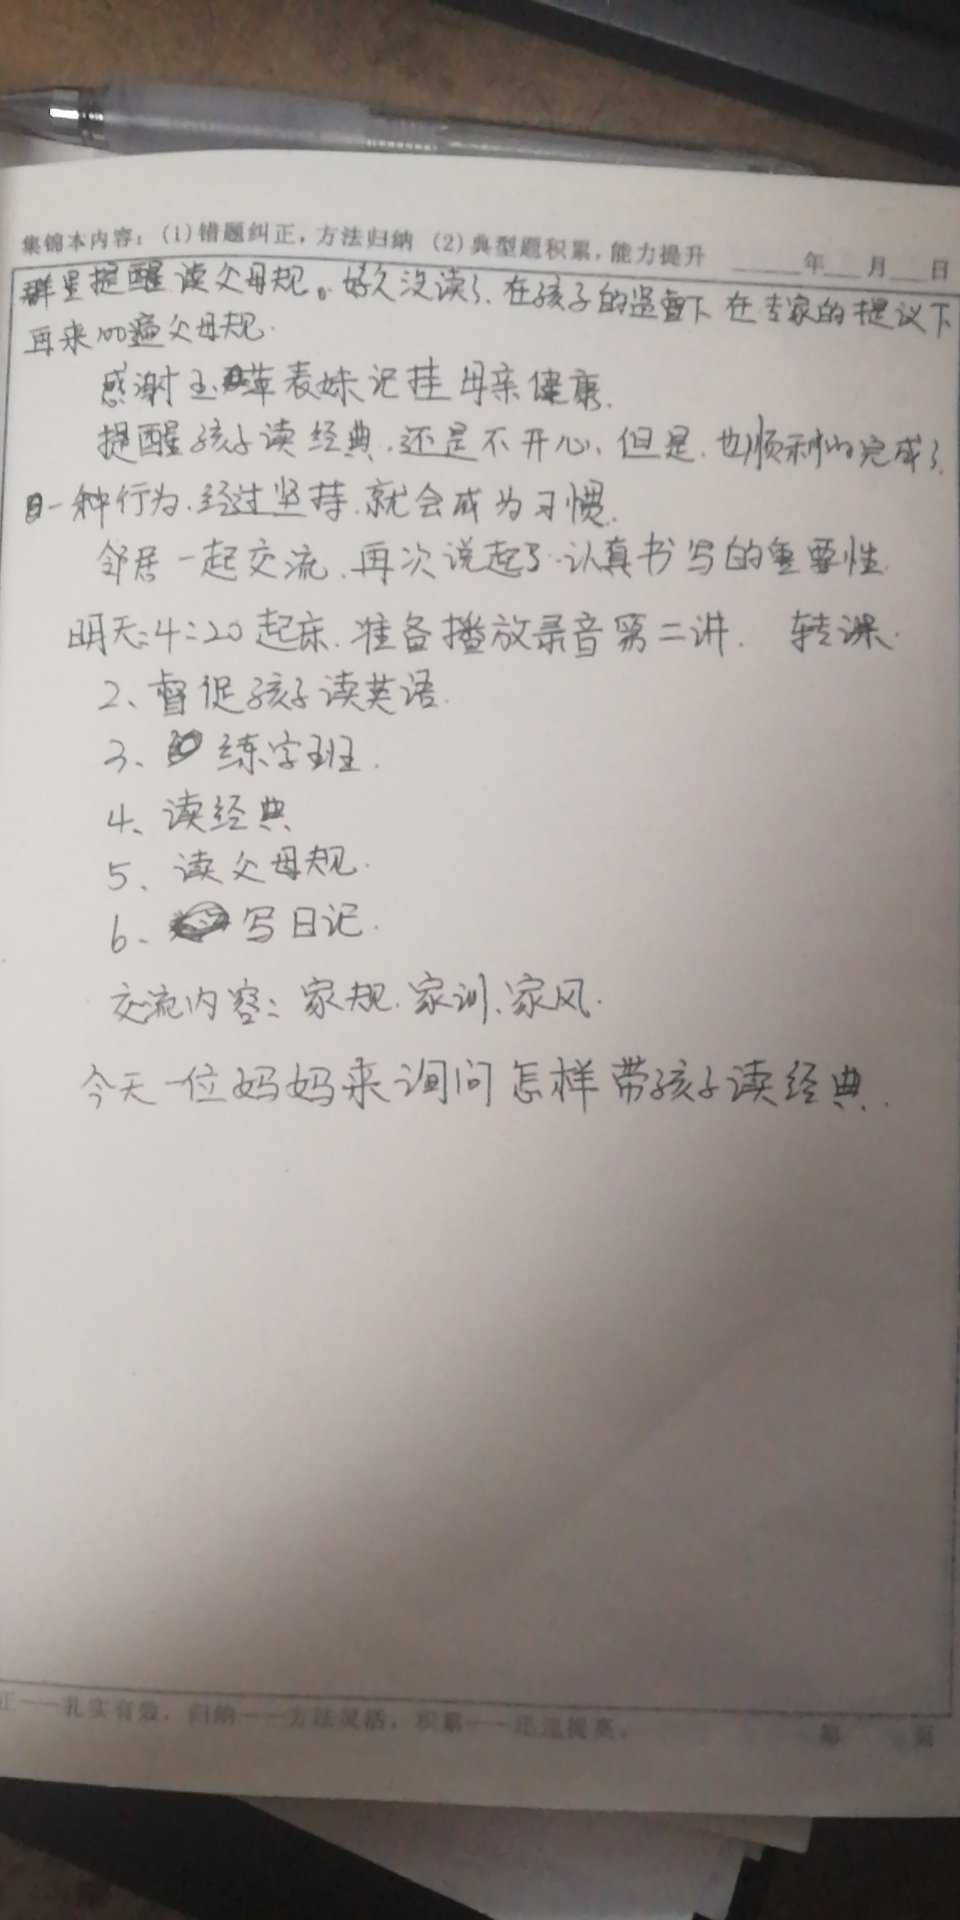 集锦本内容：(1)错题纠正，方法归纳 (2)典型题积累，能力提升 ____年__月__日
群里提醒读父母规。好久没读了，在孩子的监督下在专家的提议下
再来100遍父母规.
感谢玉苹表妹记挂母亲健康.
提醒孩子读经典.还是不开心，但是.也顺利的完成了.
一种行为.经过坚持.就会成为习惯.
邻居一起交流.再次说起了认真书写的重要性.
明天:4:20起床.准备播放录音第二讲. 转课.
2、督促孩子读英语.
3、练字班.
4、读经典
5、读父母规.
6、写日记.
交流内容：家规.家训.家风.
今天一位妈妈来询问怎样带孩子读经典.
正——扎实有效，归纳——方法灵活，积累——迅速提高。 第 页